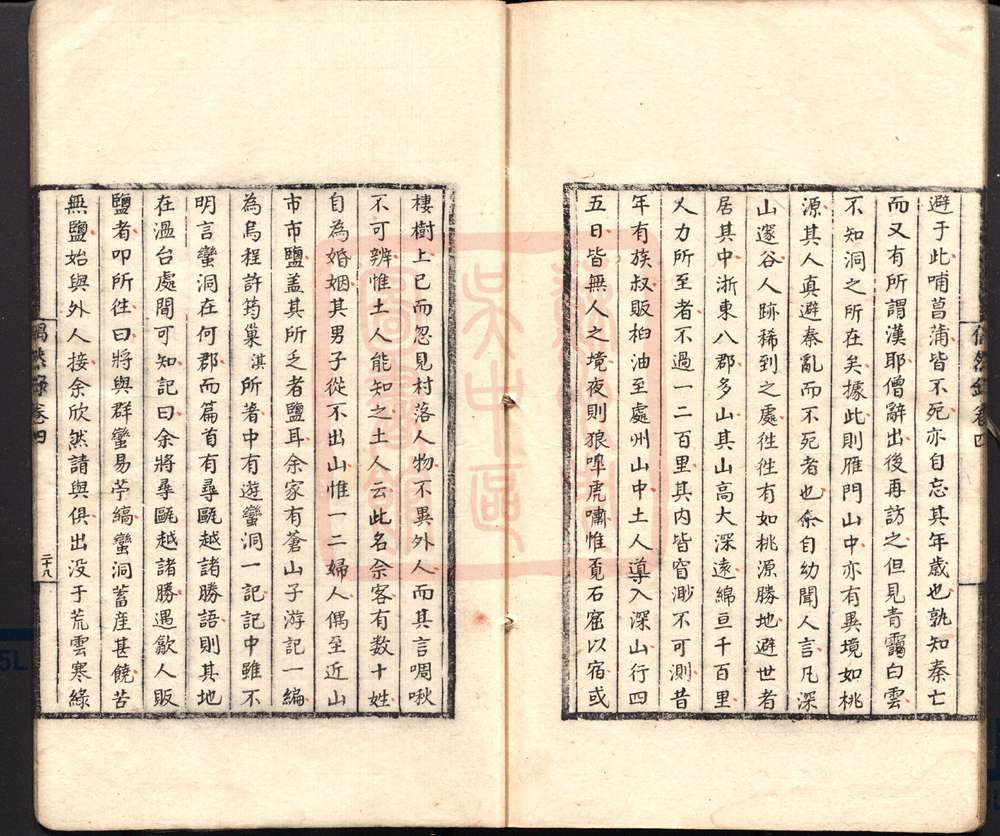 避于此哺菖蒲皆不死亦自忘其年歲也孰知秦亡
而又有所謂漢耶僧辭出後再訪之但見青靄白雲
不知洞之所在矣據此則雁門山中亦有異境如桃
源其人真避秦亂而不死者也余自幼聞人言凡深
山邃谷人跡稀到之處徃徃有如桃源勝地避世者
居其中浙東八郡多山其山高大深遠綿亘千百里
人力所至者不過一二百里其内皆窅渺不可測昔
年有族叔販桕油至處州山中土人導入深山行四
五日皆無人之境夜則狼嘷虎嘯惟覓石窟以宿或
棲樹上已而忽見村落人物不異外人而其言啁啾
不可辨惟土人能知之土人云此名佘客有數十姓
自為婚姻其男子從不出山惟一二婦人偶至近山
市市鹽盖其所乏者鹽耳余家有蒼山子游記一編
為烏程許筠巢淇所著中有遊蠻洞一記記中雖不
明言蠻洞在何郡而篇首有尋甌越諸勝語則其地
在温台處間可知記曰余將尋甌越諸勝遇歙人販
鹽者叩所徃曰將與群蠻易苧縞蠻洞蓄産甚饒苦
無鹽始與外人接余欣然請與俱出没于荒雲寒綠
偶然錄卷四
二十八